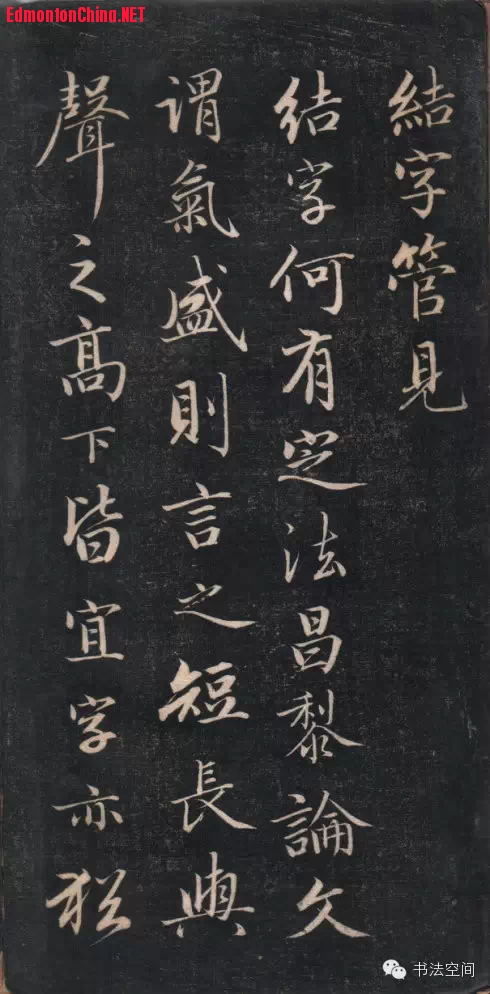 EdmontonChina.NET
結字管見
结字何有定法昌黎論文
谓氣盛則言之短長與
聲之高下皆宜字亦猶
书法空间